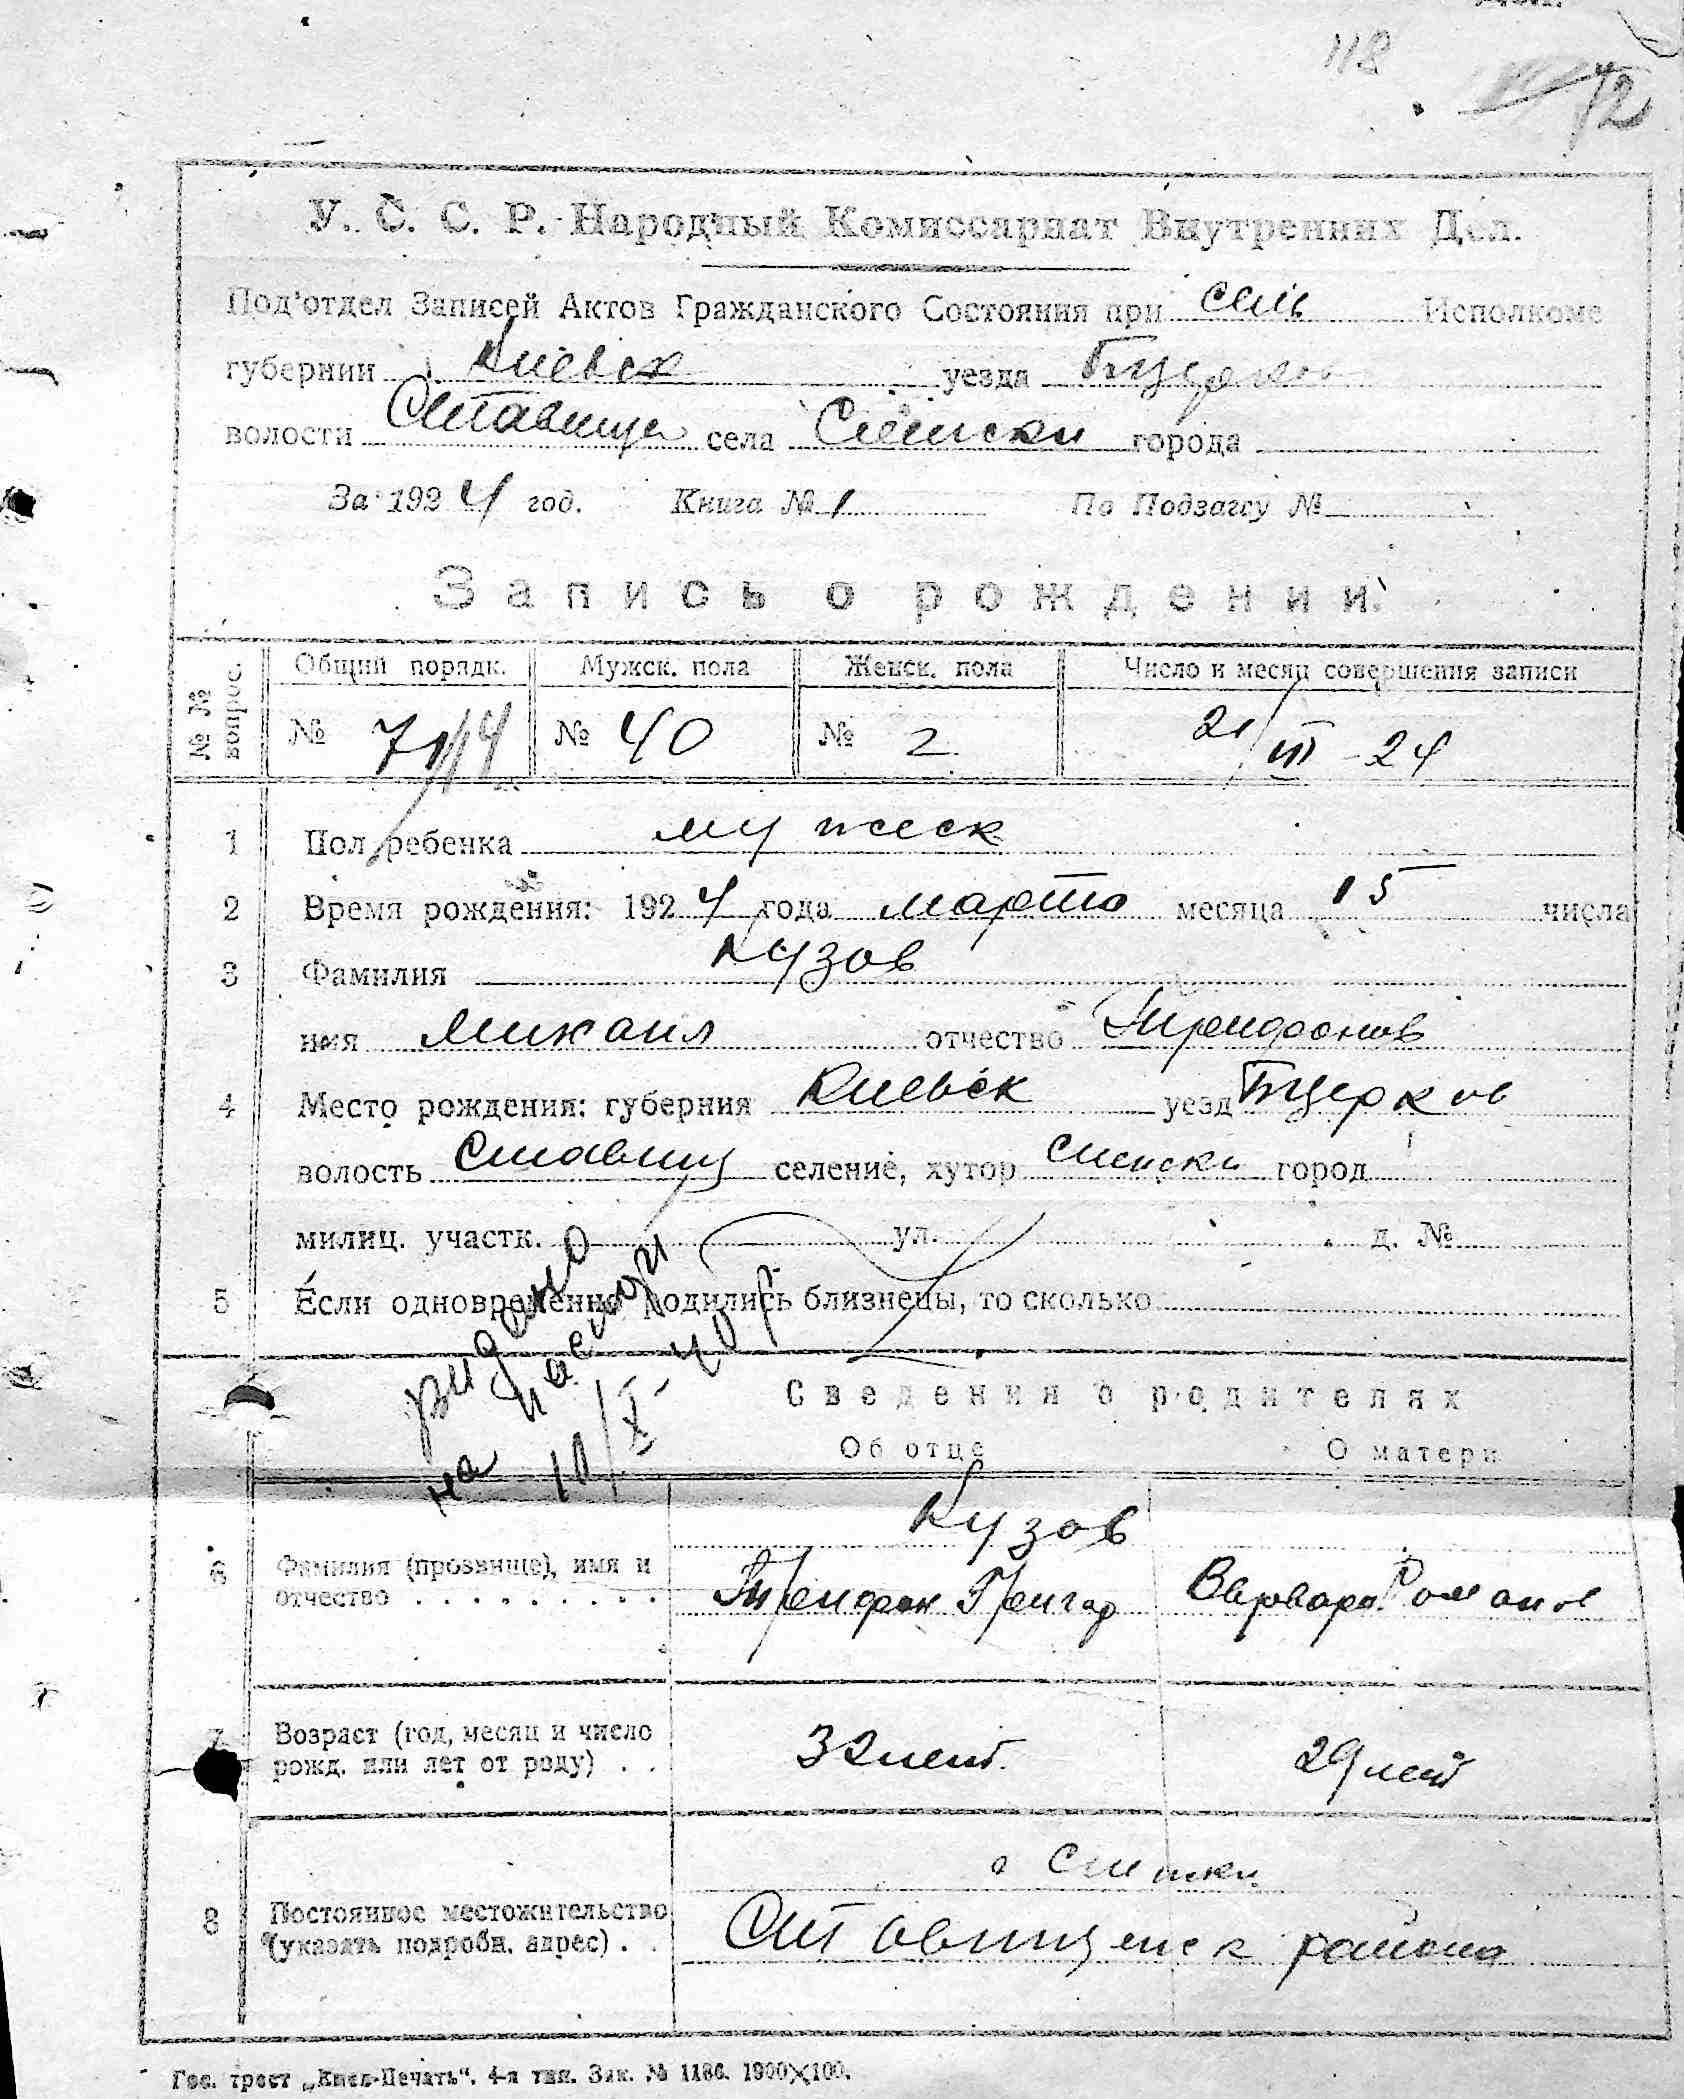 118
12
У. С. С. Р. Народный Комиссариат Внутренних Дел.
Под'отдел Записей Актов Гражданского Состояния при сель Исполкоме
губернии Киевск уезда Бцерков
волости Ставище села города
За 1924 год. Книга № 1 По Подзагсу №
Запись о рождении.
№ № вопрос. Общий порядк. Мужск. пола Женск. пола Число и месяц совершения записи
№ № 40 № 2 21/III - 24
1 Пол ребенка мужеск
2 Время рождения: 1924 года марта месяца 15 числа
3 Фамилия Кузов
имя Михаил отчество Трифонов
4 Место рождения: губерния Киевск уезд Бцерков
волость Ставищ селение, хутор город
милиц. участк. ул. д. №
5 Если одновременно родились близнецы, то сколько
видано
на паспорт
10/X
Сведения о родителях
Об отце О матери
Кузов
6 Фамилия (прозвище), имя и отчество Трифон Григор Варвара Романов
7 Возраст (год, месяц и число рожд. или лет от роду) 32 лет. 29 лет
8 Постоянное местожительство (указать подробн. адрес)
Ставищенск района
Гос. трест „Киев-Печать“. 4-я тип. Зак. № 1186. 1900×100.